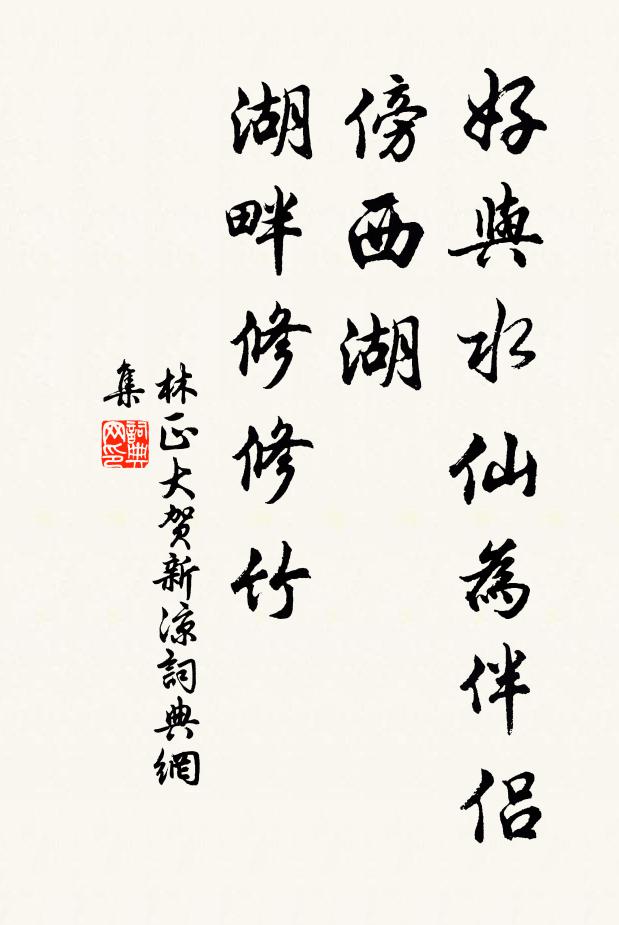 好與水仙為伴侶
傍西湖
湖畔修修竹
林正大賀新涼詞典網
集
詞典
网印